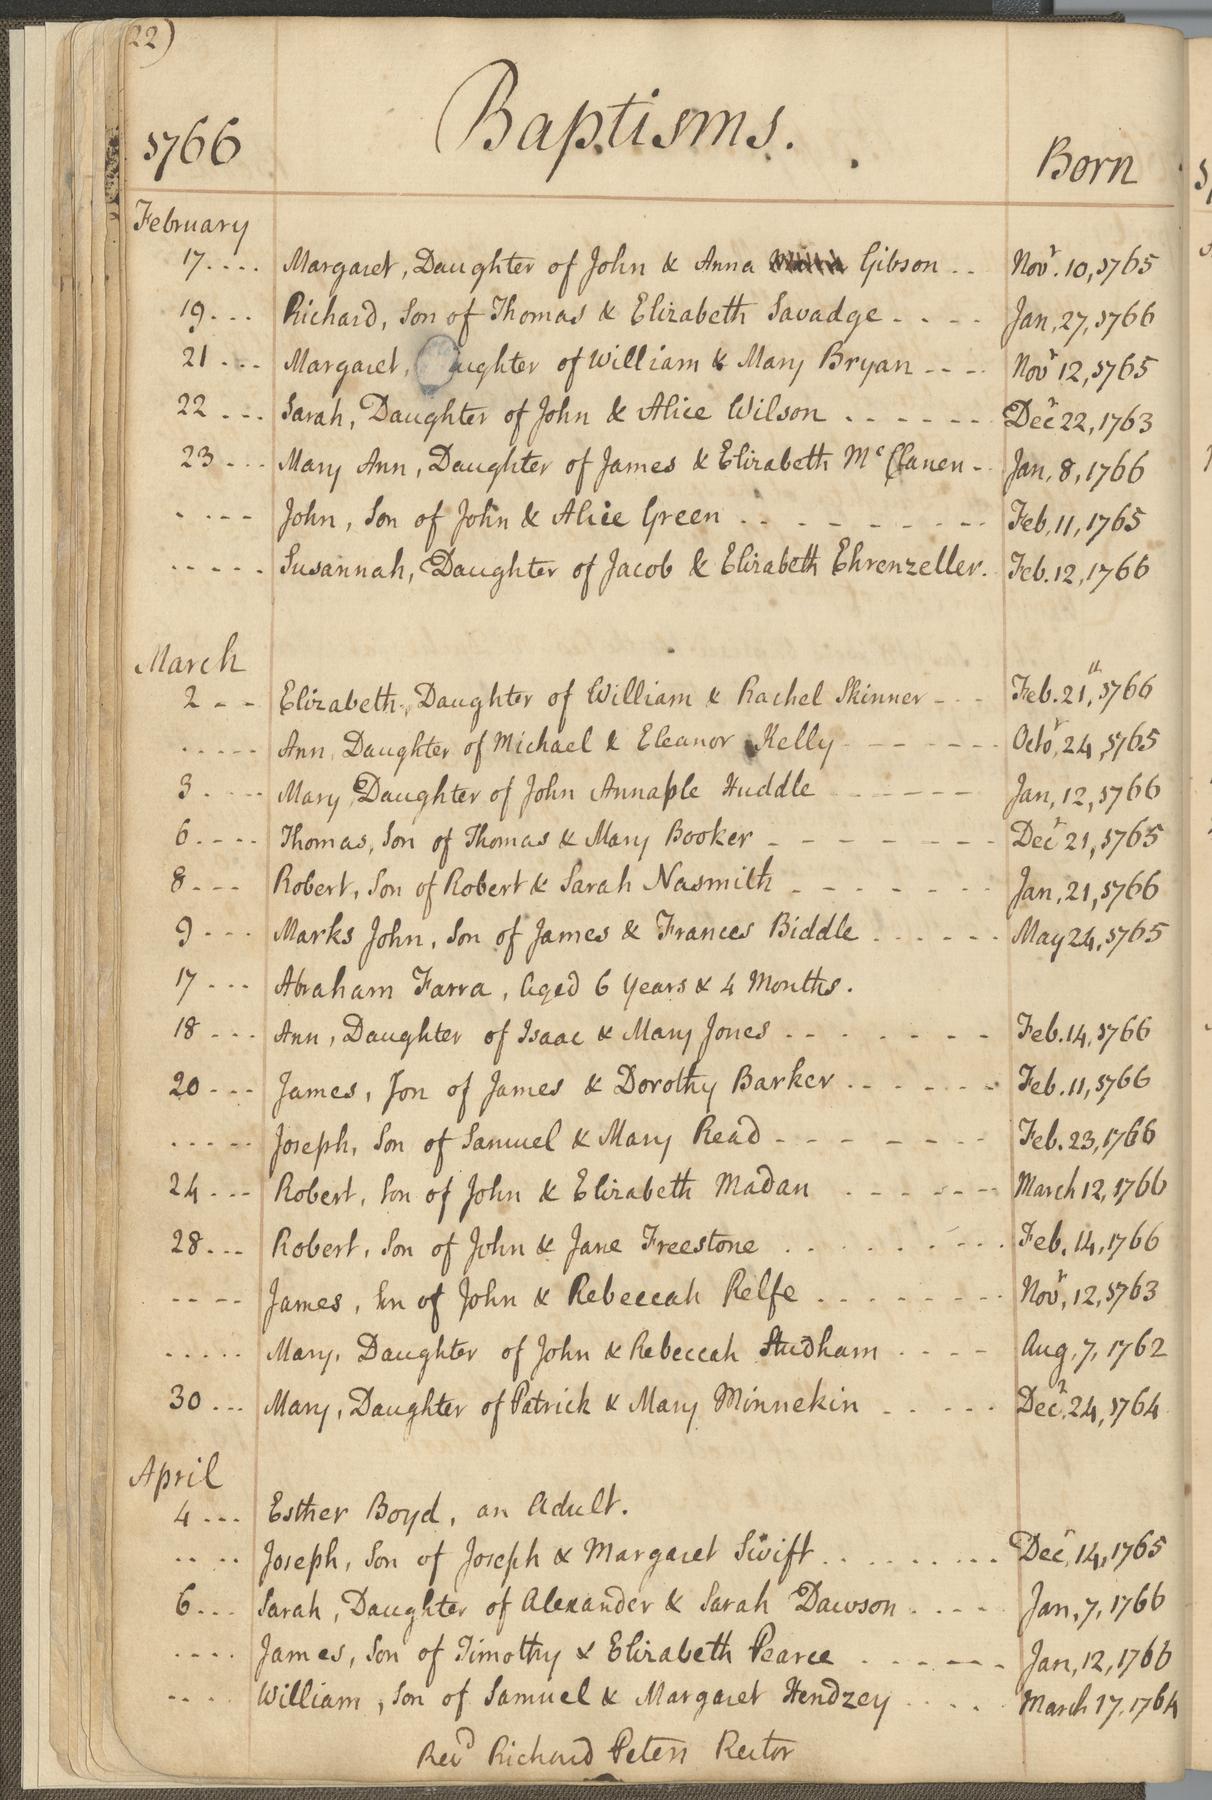 22)
1766 Baptisms. Born
February
17.... Margaret, Daughter of John & Anna Gibson .. Novr. 10, 1765
19... Richard, Son of Thomas & Elizabeth Savadge .... Jan, 27, 1766
21... Margaret, aughter of William & Mary Bryan ---- Novr 12, 1765
22... Sarah, Daughter of John & Alice Wilson ....... Decr 22, 1763
23... Mary Ann, Daughter of James & Elizabeth McClanen -- Jan, 8, 1766
.... John, Son of John & Alice Green ......... Feb, 11, 1765
..... Susannah, Daughter of Jacob & Elizabeth Ehrenzeller. Feb. 12, 1766
March
2 -- Elizabeth, Daughter of William & Rachel Skinner --- Feb. 21th, 1766
..... Ann, Daughter of Michael & Eleanor Kelly ------- Octor, 24, 1765
3 .... Mary, Daughter of John Annaple Huddle ------ Jan, 12, 1766
6 .... Thomas, Son of Thomas & Mary Booker -------- Decr 21, 1765
8 --- Robert, Son of Robert & Sarah Nasmith ------- Jan, 21, 1766
9 ... Marks John, Son of James & Frances Biddle ...... May 24, 1765
17 ... Abraham Farra, aged 6 Years & 4 Months.
18 ... Ann, Daughter of Isaac & Mary Jones ....... Feb. 14, 1766
20 ... James, Son of James & Dorothy Barker ...... Feb. 11, 1766
..... Joseph, Son of Samuel & Mary Read -------- Feb. 23, 1766
24 ... Robert, Son of John & Elizabeth Madan ...... March 12, 1766
28 ... Robert, Son of John & Jane Freestone ......... Feb. 14, 1766
---- James, Son of John & Rebeccah Relfe ........ Novr, 12, 1763
..... Mary, Daughter of John & Rebeccah Studham .... Aug, 7, 1762
30 ... Mary, Daughter of Patrick & Mary Minnekin ..... Decr, 24, 1764
April
4 ... Esther Boyd, an Adult.
.... Joseph, Son of Joseph & Margaret Swift ......... Decr, 14, 1765
6 ... Sarah, Daughter of Alexander & Sarah Dawson .... Jan, 7, 1766
.... James, Son of Timothy & Elizabeth Pearce ...... Jan, 12, 1766
.... William, Son of Samuel & Margaret Hendzey .... March 17, 1764
Revd Richard Peters Rector